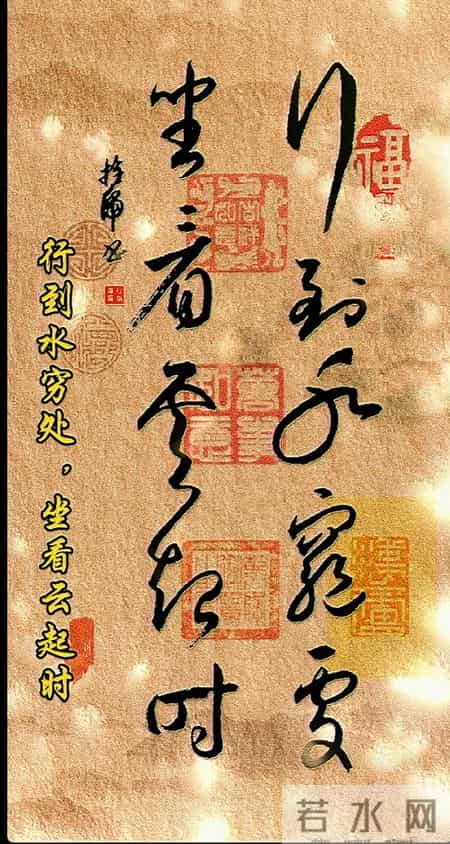 行到水窮處
坐看雲起时
行到水穷处，坐看云起时
福
若水网